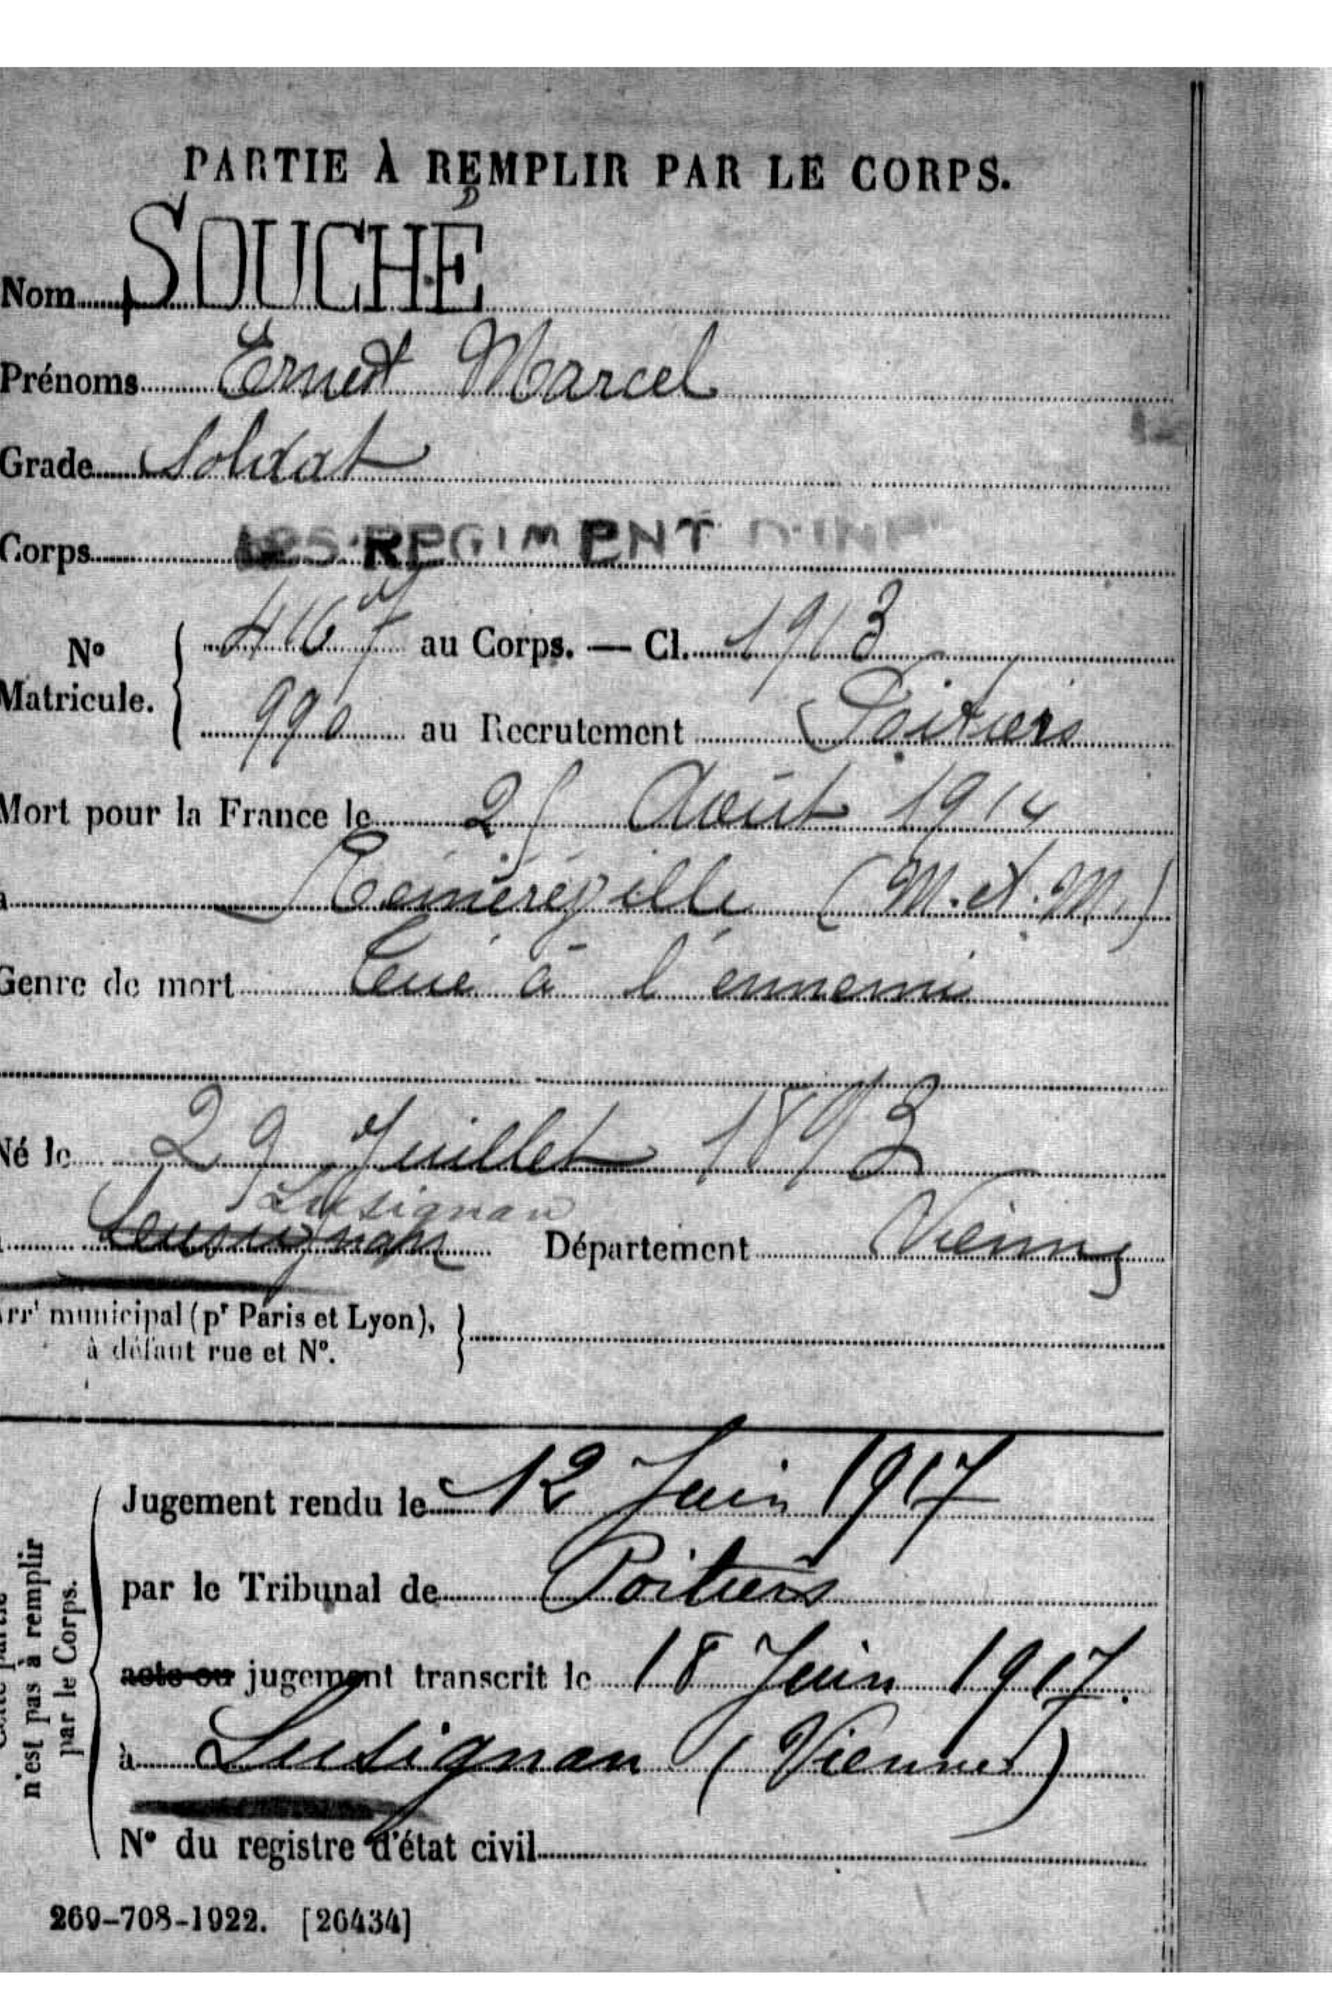 PARTIE À REMPLIR PAR LE CORPS.
Nom SOUCHÉ
Prénoms Ernest Marcel
Grade Soldat
Corps 125e REGIMENT D'INF
No Matricule. 4167 au Corps. — Cl. 1913
990 au Recrutement Poitiers
Mort pour la France le 25 Août 1914
Réméréville (M. et. M.)
Genre de mort Tué à l'ennemi
Né le 29 Juillet 1893
Lusignan
Département Vienne
arrt municipal (pr Paris et Lyon),
à défaut rue et No.
Jugement rendu le 12 Juin 1917
par le Tribunal de Poitiers
acte ou jugement transcrit le 18 Juin 1917.
à Lusignan (Vienne)
No du registre d'état civil
n'est pas à remplir
par le Corps.
269-708-1922. [26434]